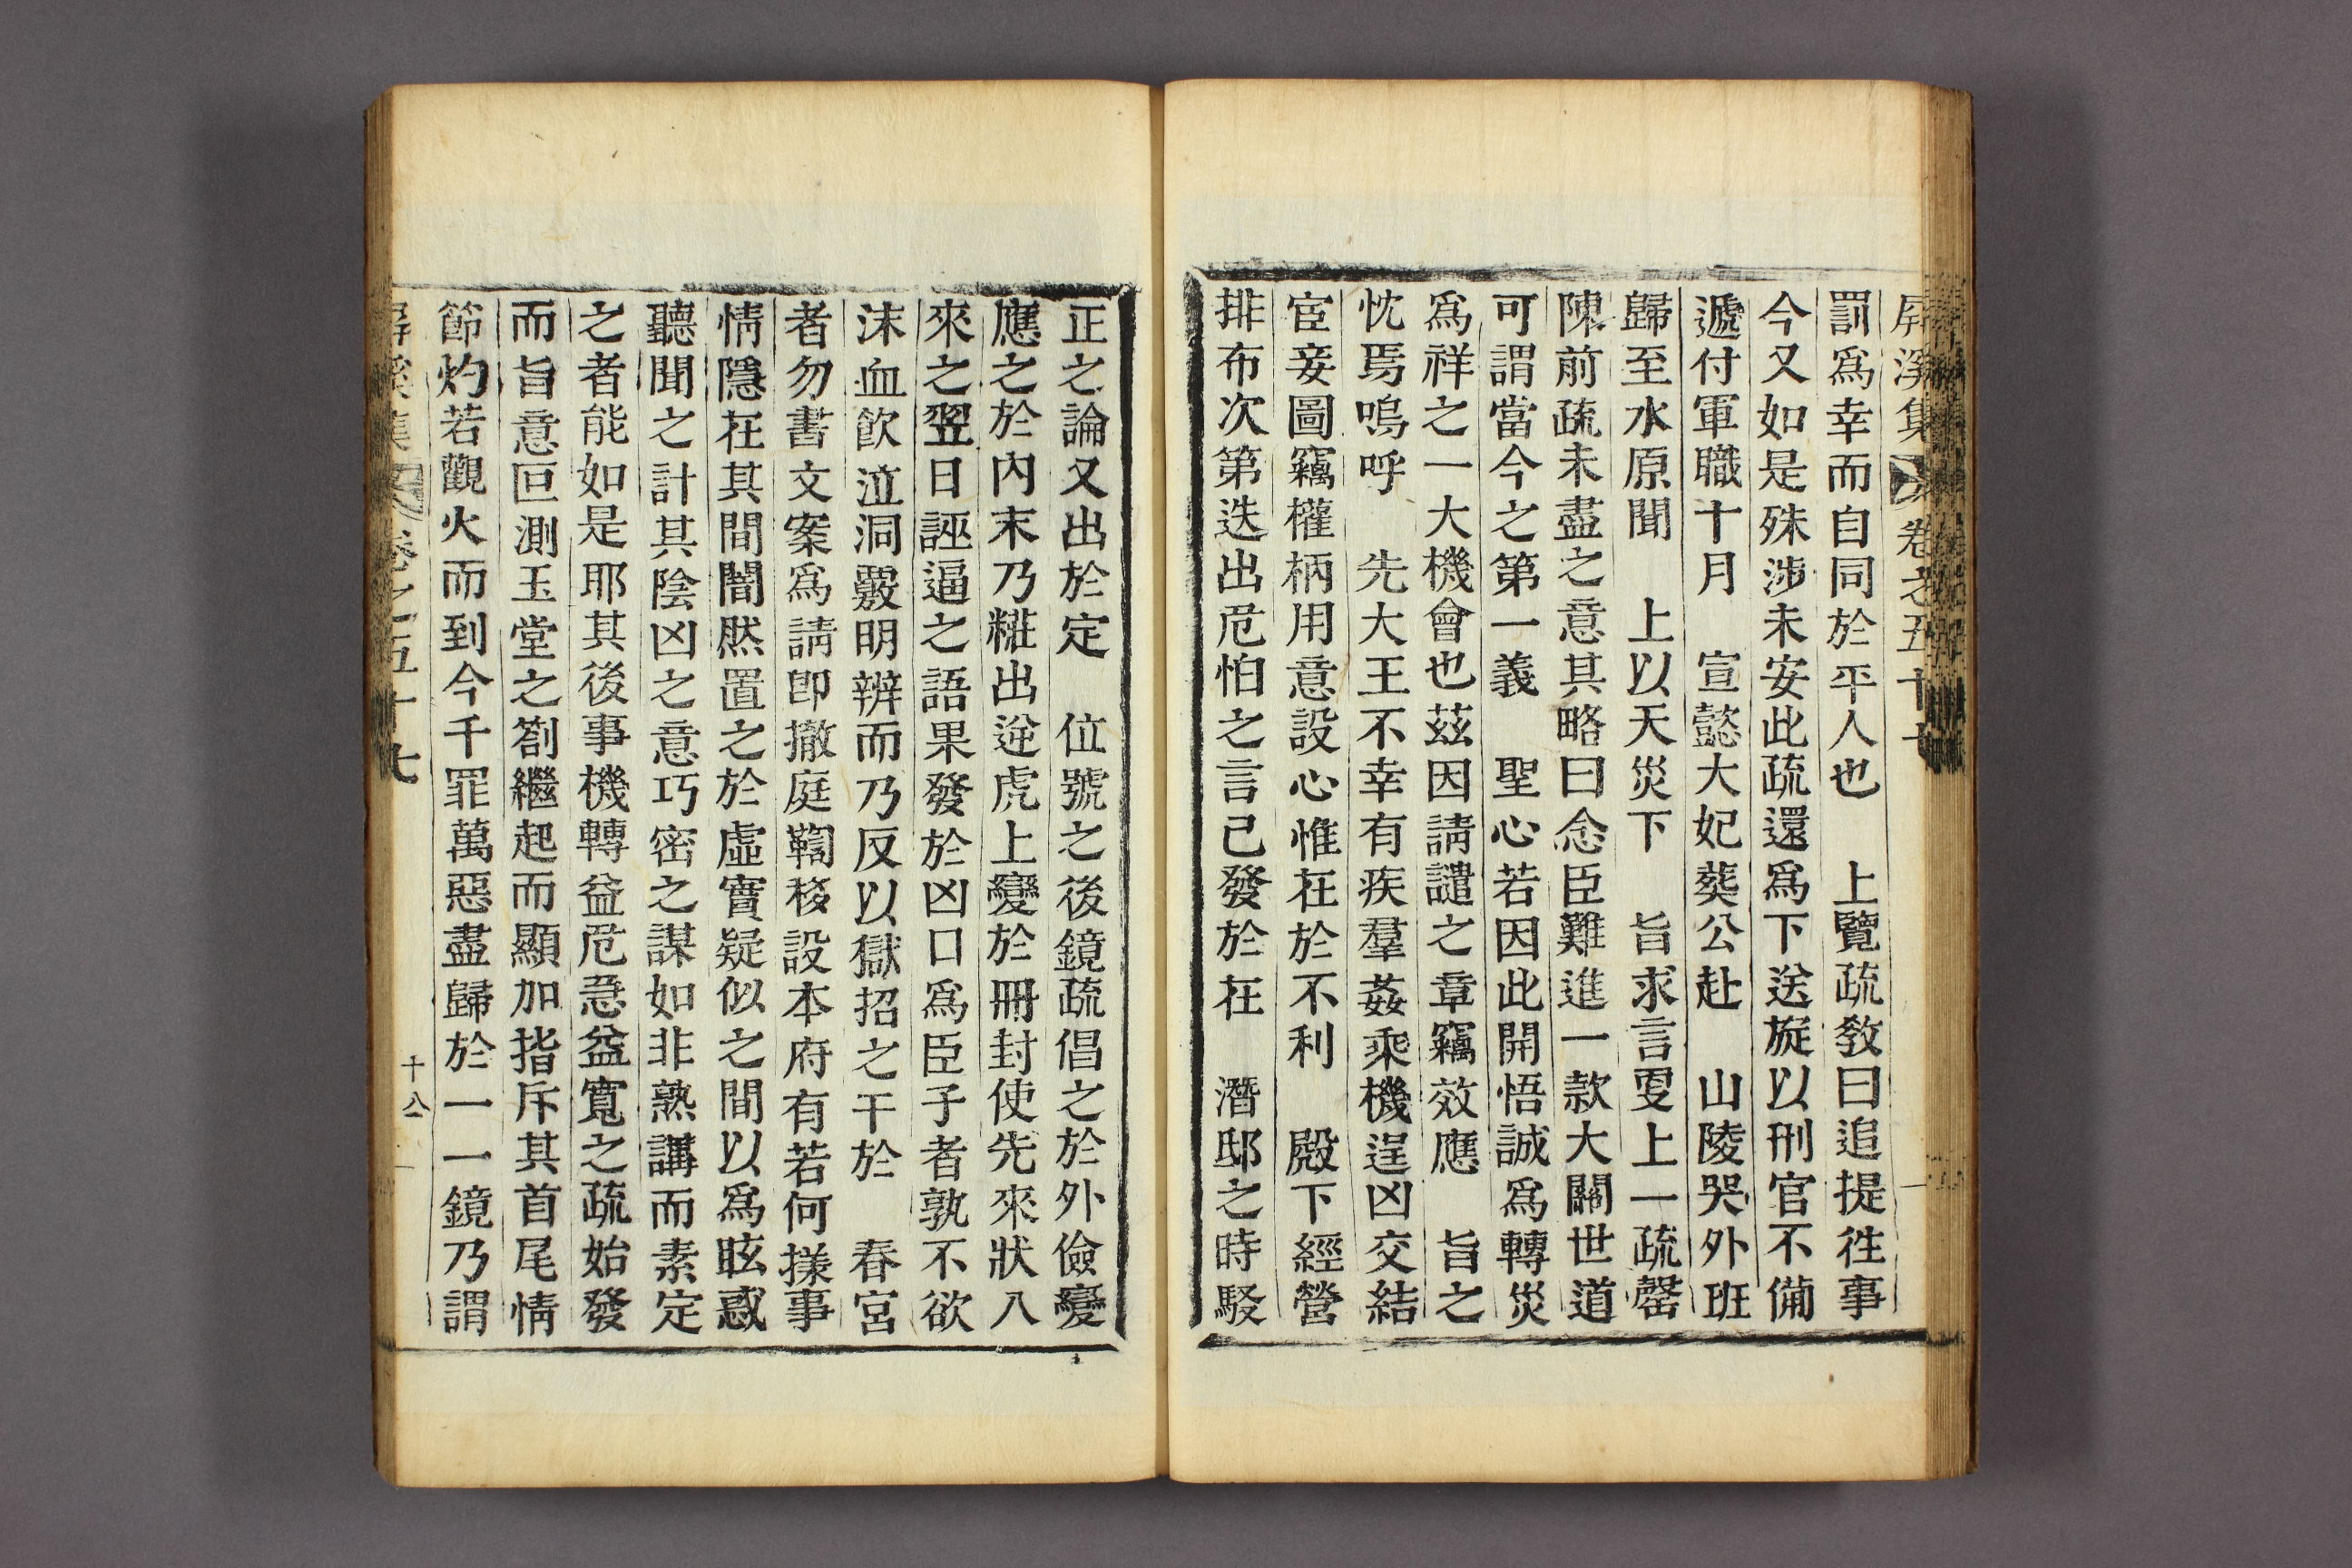 屛溪集 卷之五十七
罰爲幸而自同於平人也 上覽疏敎曰追提徃事
今又如是殊涉未安此疏還爲下送旋以刑官不備
遞付軍職十月 宣懿大妃葬公赴 山陵哭外班
歸至水原聞 上以天災下 旨求言更上一疏罄
陳前疏未盡之意其略曰念臣難進一款大關世道
可謂當今之第一義 聖心若因此開悟誠爲轉災
爲祥之一大機會也玆因請譴之章竊效應 旨之
忱焉嗚呼 先大王不幸有疾羣姦乘機逞凶交結
宦妾圖竊權柄用意設心惟在於不利 殿下經營
排布次第迭出危怕之言已發於在 潛邸之時駁
正之論又出於定 位號之後鏡疏倡之於外儉變
應之於內末乃糚出逆虎上變於冊封使先來狀入
來之翌日誣逼之語果發於凶口爲臣子者孰不欲
沫血飮泣洞覈明辨而乃反以獄招之干於 春宮
者勿書文案爲請卽撤庭鞫移設本府有若何㨾事
情隱在其間闇然置之於虛實疑似之間以爲眩惑
聽聞之計其陰凶之意巧密之謀如非熟講而素定
之者能如是耶其後事機轉益危急益寬之疏始發
而旨意叵測玉堂之箚繼起而顯加指斥其首尾情
節灼若觀火而到今千罪萬惡盡歸於一一鏡乃謂
屛溪集 卷之五十七 十八